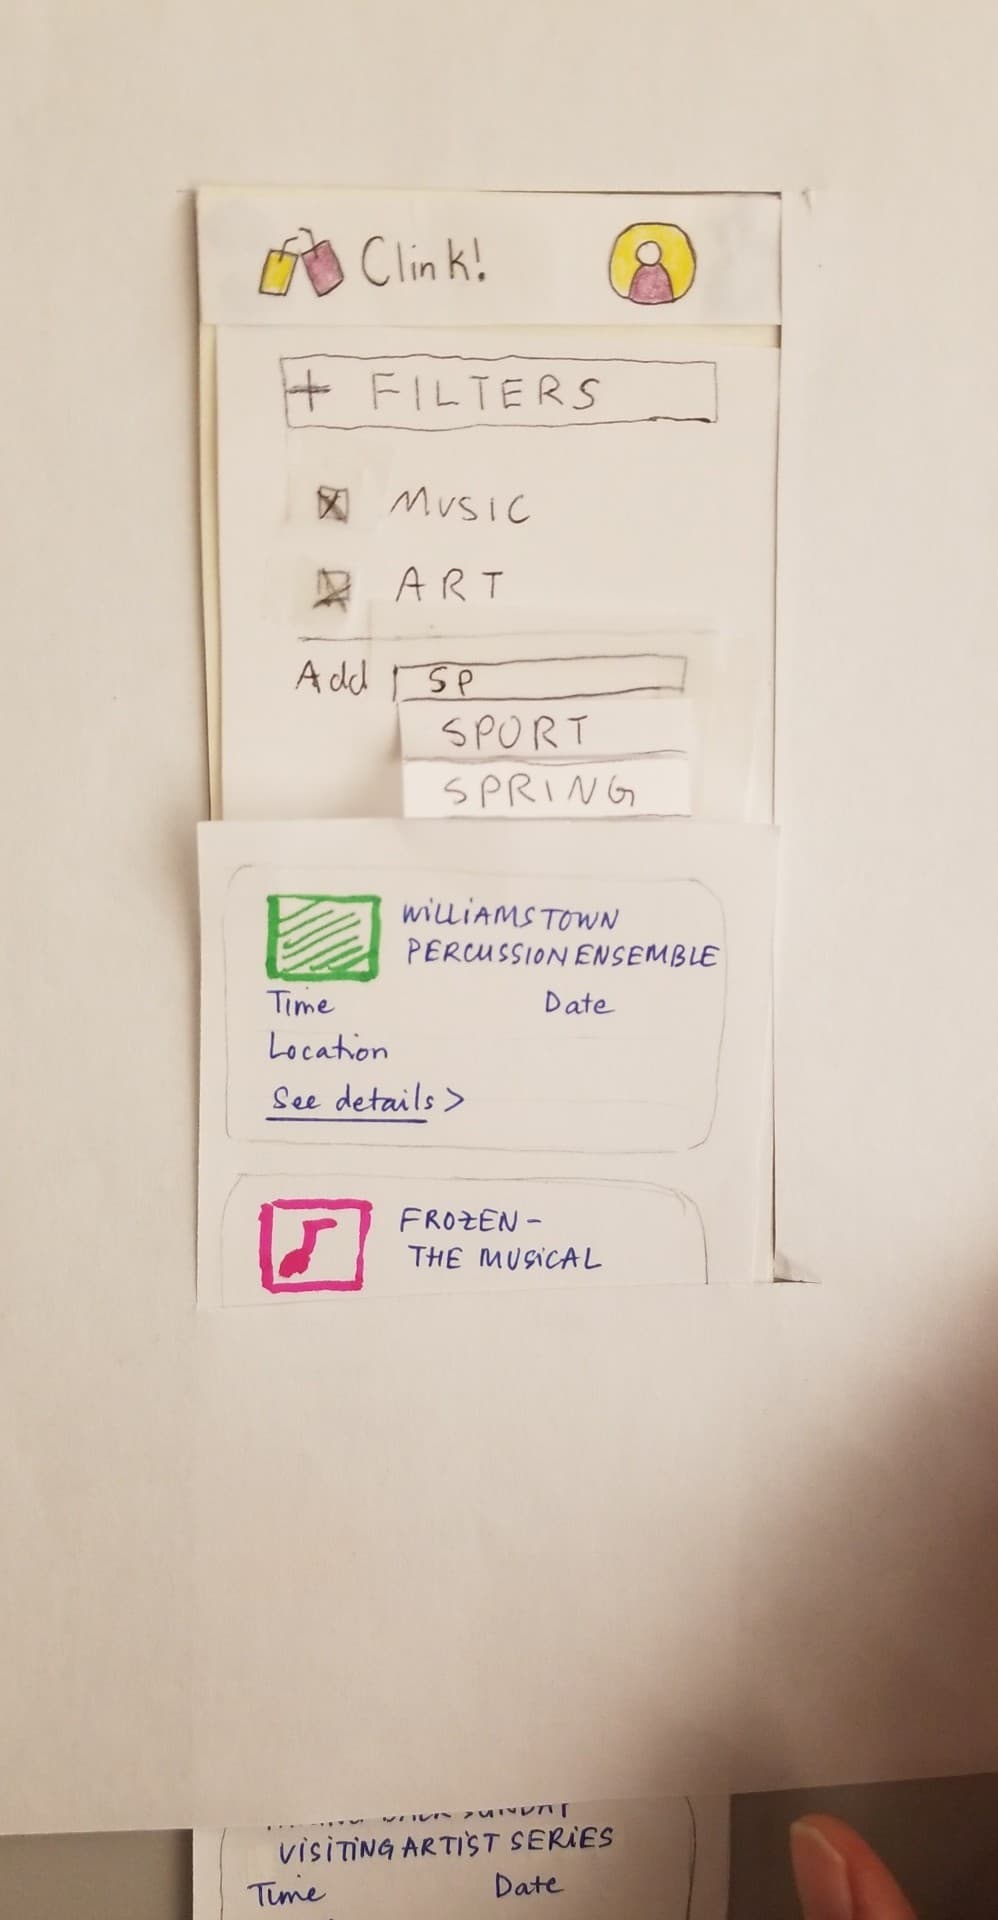 Clink!
+ FILTERS
MUSIC
ART
Add SP
SPORT
SPRING
WILLIAMSTOWN
PERCUSSION ENSEMBLE
Time Date
Location
See details >
FROZEN-
THE MUSICAL
SUNDAY
VISITING ARTIST SERIES
Time Date